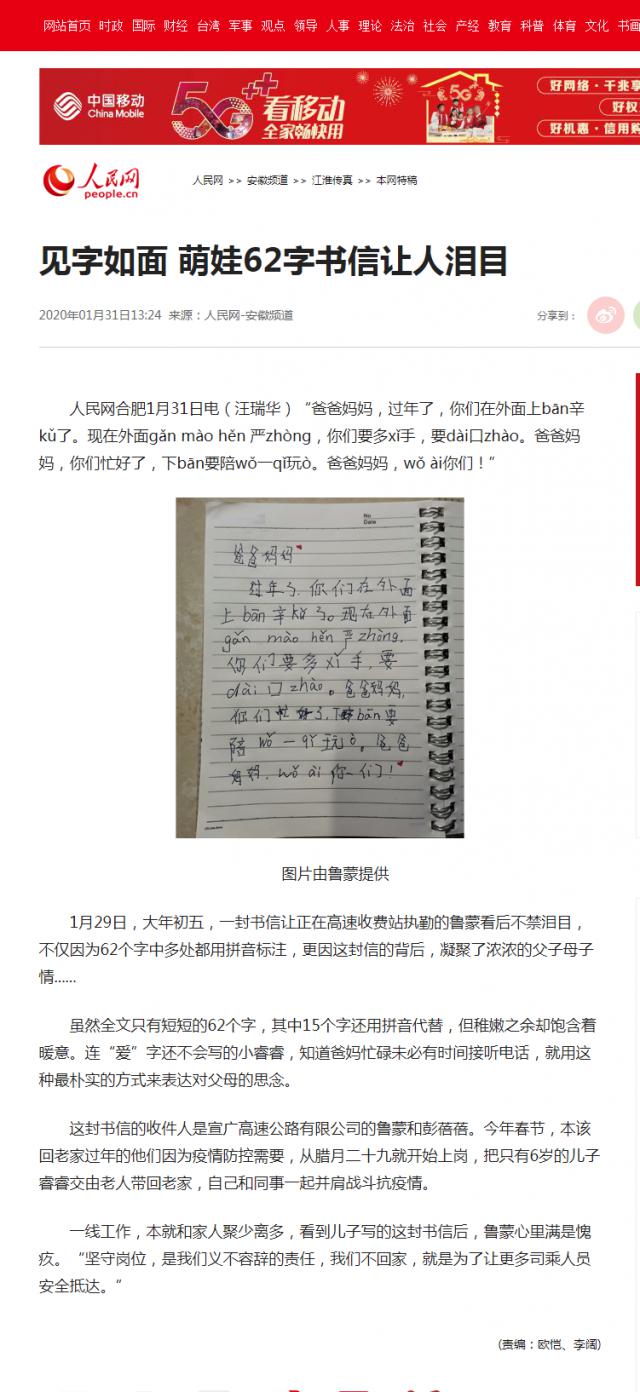 网站首页 时政 国际 财经 台湾 军事 观点 领导 人事 理论 法治 社会 产经 教育 科普 体育 文化 书画
中国移动
China Mobile
5G++
看移动
全家畅快用
5G
好网络·千兆享
好权
好机惠·信用购
人民网
people.cn
人民网 >> 安徽频道 >> 江淮传真 >> 本网特稿
见字如面 萌娃62字书信让人泪目
2020年01月31日13:24 来源：人民网-安徽频道
分享到：
人民网合肥1月31日电（汪瑞华）“爸爸妈妈，过年了，你们在外面上bān辛
kǔ了。现在外面gǎn mào hěn 严zhòng，你们要多xǐ手，要dài口zhào。爸爸妈
妈，你们忙好了，下bān要陪wǒ一qǐ玩ò。爸爸妈妈，wǒ ài你们！”
No
Date
爸爸妈妈
过年了，你们在外面
上bān辛kǔ了。现在外面
gǎn mào hěn 严zhòng，
你们要多xǐ手，要
dài口zhào。爸爸妈妈，
你们忙好了，下bān要
陪wǒ一qǐ玩ò。爸爸
妈妈，wǒ ài你们！
图片由鲁蒙提供
1月29日，大年初五，一封书信让正在高速收费站执勤的鲁蒙看后不禁泪目，
不仅因为62个字中多处都用拼音标注，更因这封信的背后，凝聚了浓浓的父子母子
情......
虽然全文只有短短的62个字，其中15个字还用拼音代替，但稚嫩之余却饱含着
暖意。连“爱”字还不会写的小睿睿，知道爸妈忙碌未必有时间接听电话，就用这
种最朴实的方式来表达对父母的思念。
这封书信的收件人是宣广高速公路有限公司的鲁蒙和彭蓓蓓。今年春节，本该
回老家过年的他们因为疫情防控需要，从腊月二十九就开始上岗，把只有6岁的儿子
睿睿交由老人带回老家，自己和同事一起并肩战斗抗疫情。
一线工作，本就和家人聚少离多，看到儿子写的这封书信后，鲁蒙心里满是愧
疚。“坚守岗位，是我们义不容辞的责任，我们不回家，就是为了让更多司乘人员
安全抵达。”
(责编：欧恺、李阔)